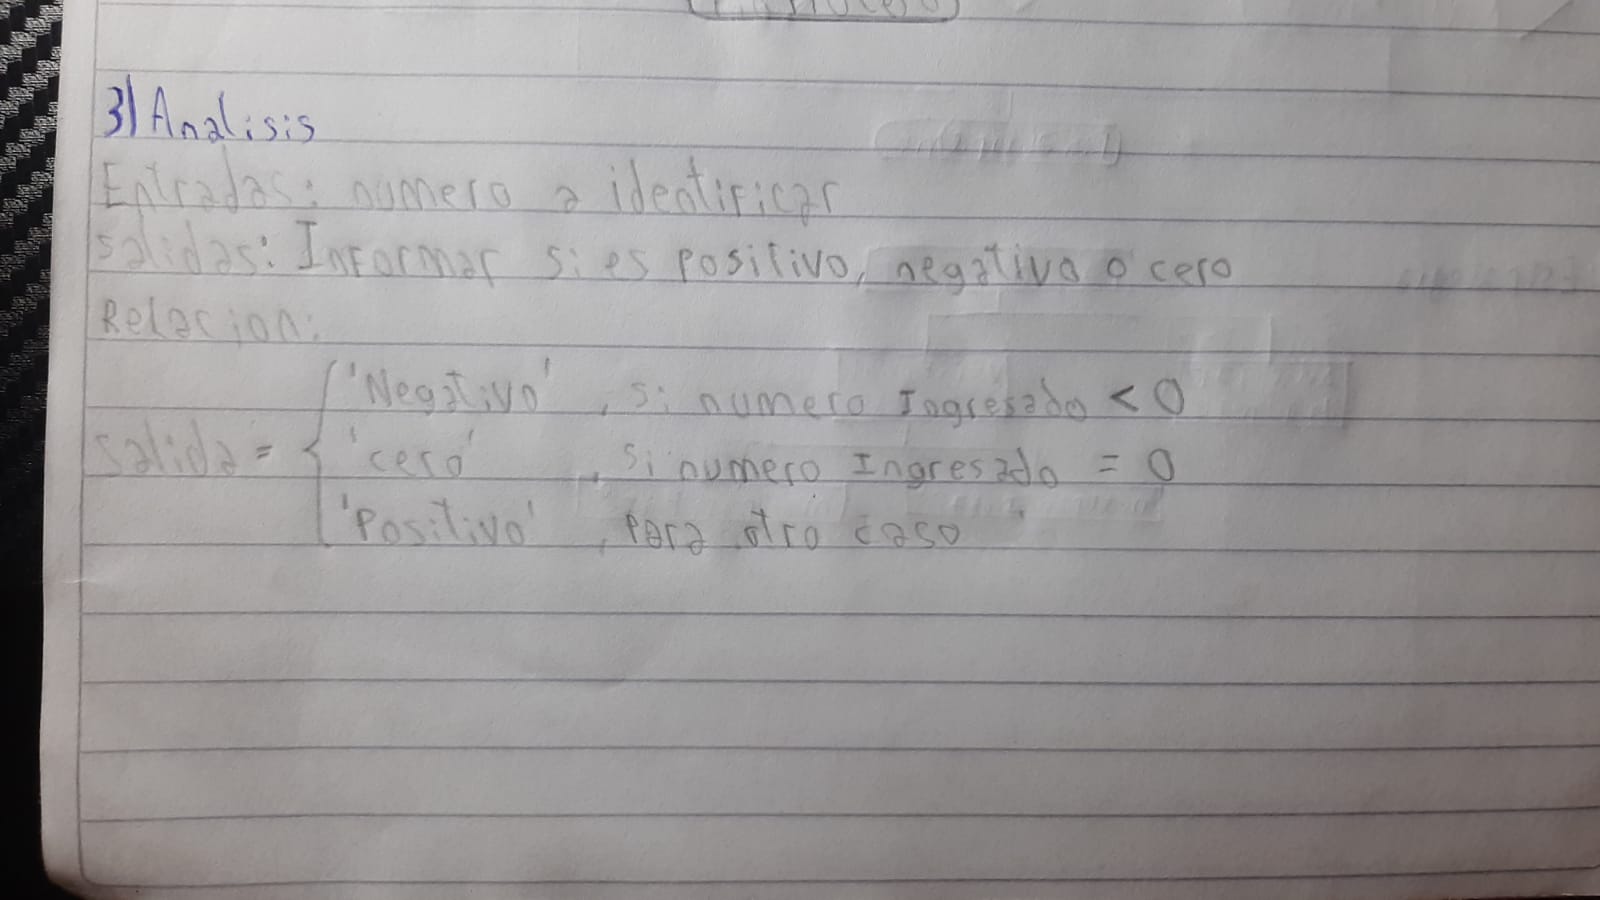 3) Analisis
Entradas: numero a identificar
Salidas: Informar si es positivo, negativo o cero
Relacion:
'Negativo' , si numero Ingresado < 0
salida = { 'cero' , si numero Ingresado = 0
'Positivo' , Para otro caso